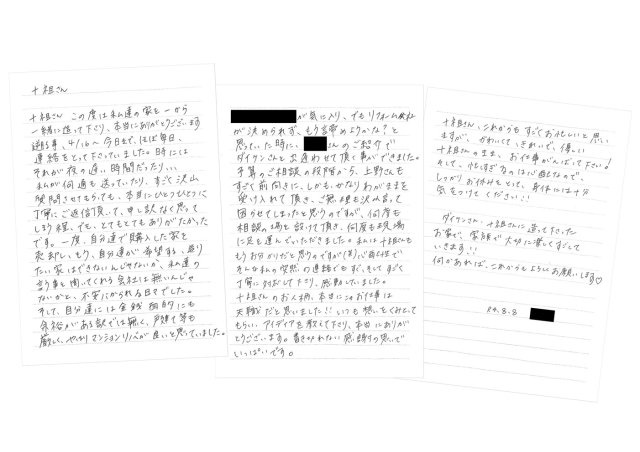 十祖さん
十祖さん この度は私達の家を一から
一緒に造って下さり、本当にありがとうございます
連絡をとって下さっていました。時には
それが夜の遅い時間だったり、、、
私が何通も送っていたり、すごく沢山
質問させてもらっても、本当にひとつひとつに
丁寧にご返信頂いて、申し訳なく思って
しまう程、でも、とてもとてもありがたかった
です。一度、自分達で購入した家を
売却し、もう、自分達が希望する、造り
たい家はできないんじゃないか、私の
言う事を聞いてくれる会社は無いんじゃ
ないかと、不安にかられる日々でした。
そして、自分達には金銭面的にも
余裕がある訳では無く、戸建て等も
厳しく、やはりマンションリノベが良いと思っていました。
が気に入り、でもリフォーム会社
が決められず、もう諦めようかな?と
思っていた時に、さんのご紹介で
ダイケンさんと出逢わせて頂く事ができました。
予算のご相談の段階から、上野さんも
すごく前向きに、しかも、かなりわがままを
受け入れて頂き、ご無理も沢山言って
困らせてしまったと思うのですが、何度も
相談の場を設けて頂き、何度も現場
に足を運んでいただきました。私は十祖さんも
もうお分かりだと思うのですが(笑)心配性で
そんな私の突然の連絡でも、すごく
丁寧に対応して下り、感動していました。
十祖さんのお人柄、本当にこのお仕事は
天職だと思いました!!いつも想いをくみとって
もらい、アイディアを教えて下さり、本当にありが
とうございます。書ききれない感謝の思いで
いっぱいです。
十祖さん、これからもすごくお忙しいと思い
ますが、かわいくて、きれいで、優しい
十祖さんのまま、お仕事がんばって下さい!
そして、忙しすぎるのは心配なので、
しっかりお休みもとって、身体には十分
気をつけてください!!
ダイケンさん、十祖さんに造って下さった
お家で、家族で大切に楽しくすごして
いきます!!
何かあれば、これからもよろしくお願いします♡
R4.8.8